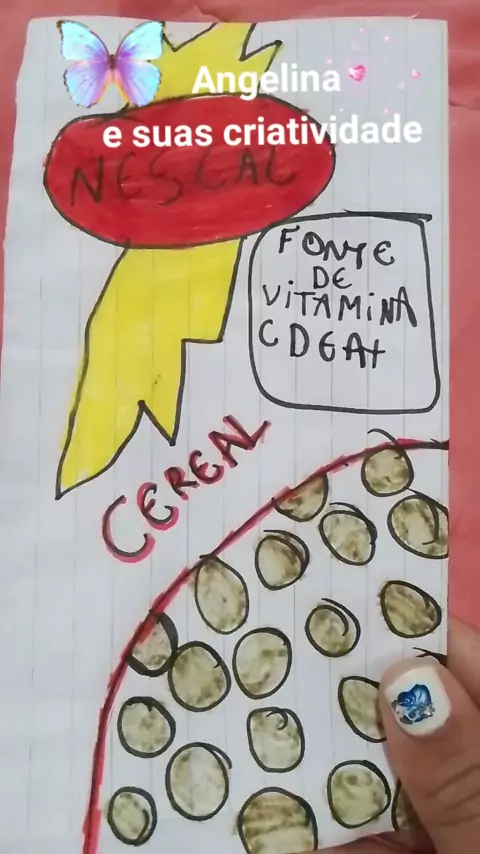 Angelina
e suas criatividade
NESCAL
FONTE
DE
VITAMINA
C D E A+
CEREAL